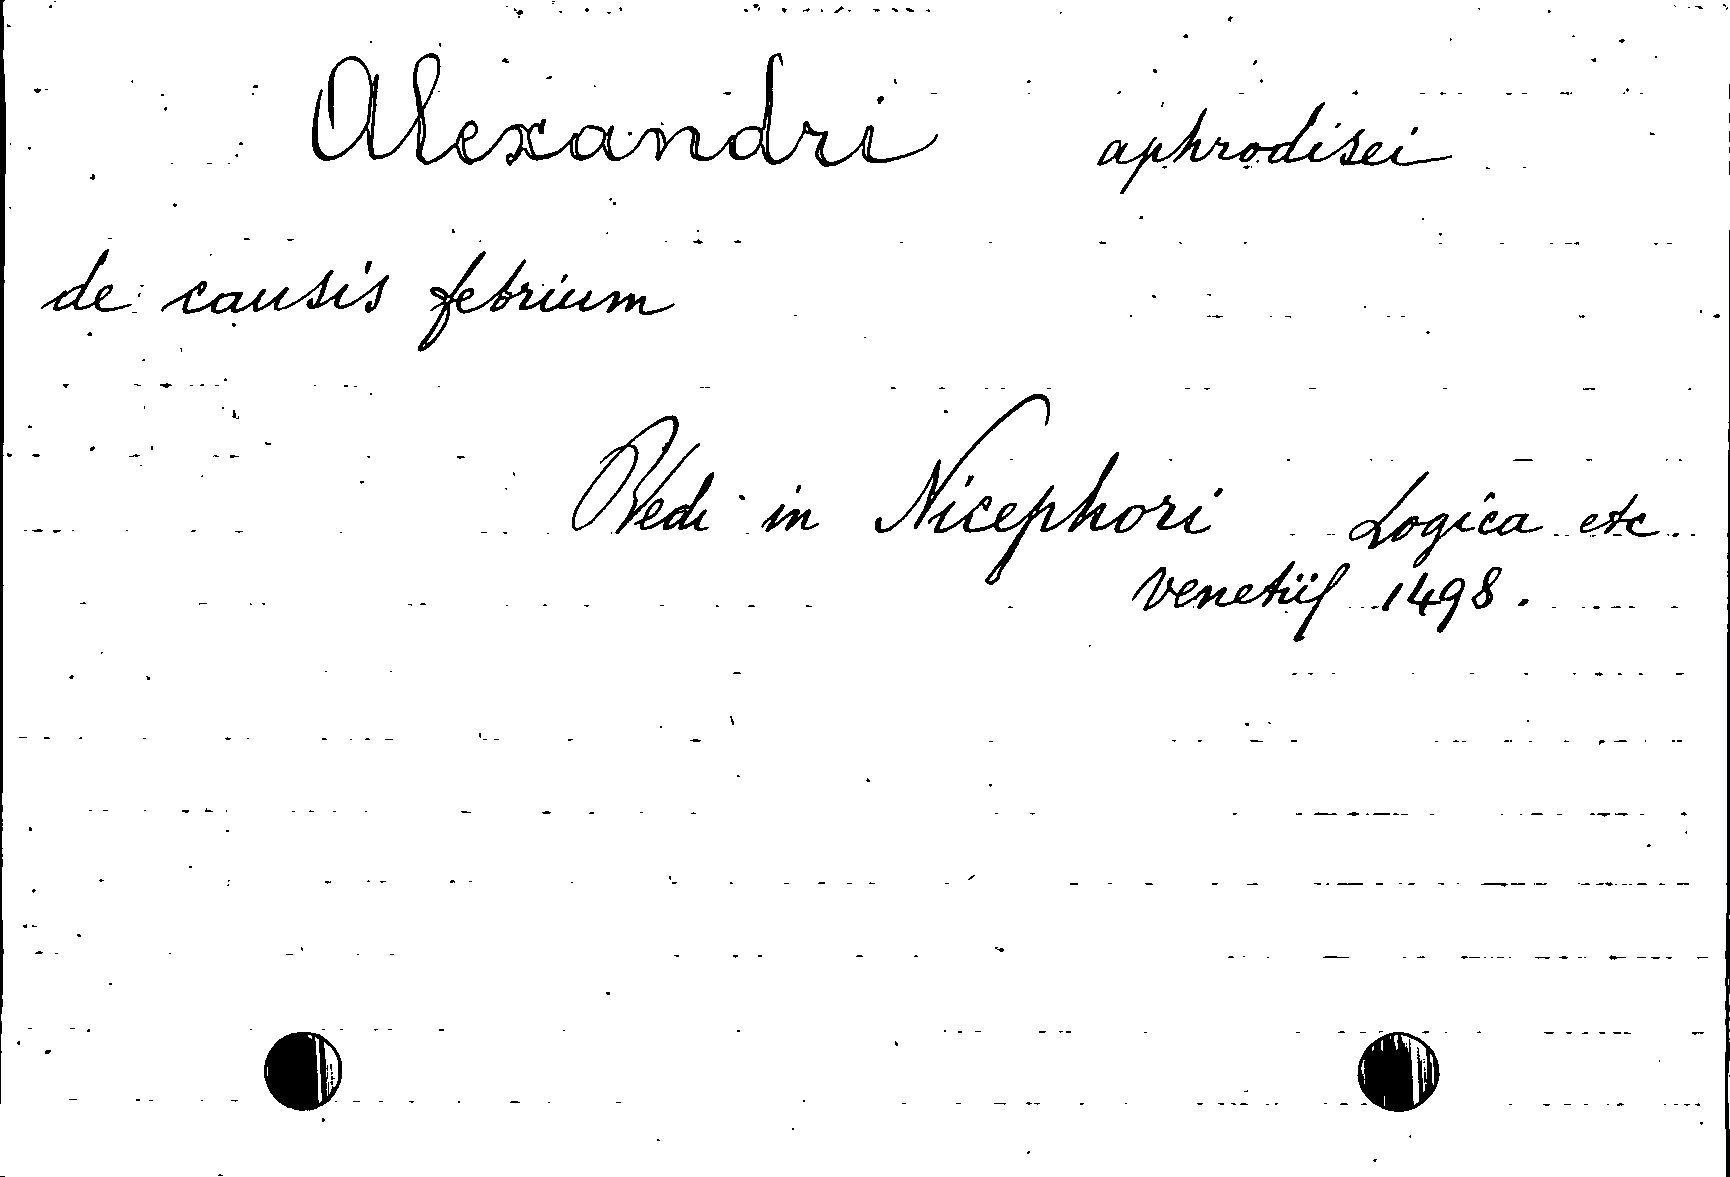 Alexandri aphrodisei
de causis febrium
Vedi in Nicephori Logica etc.
Venetiis 1498.